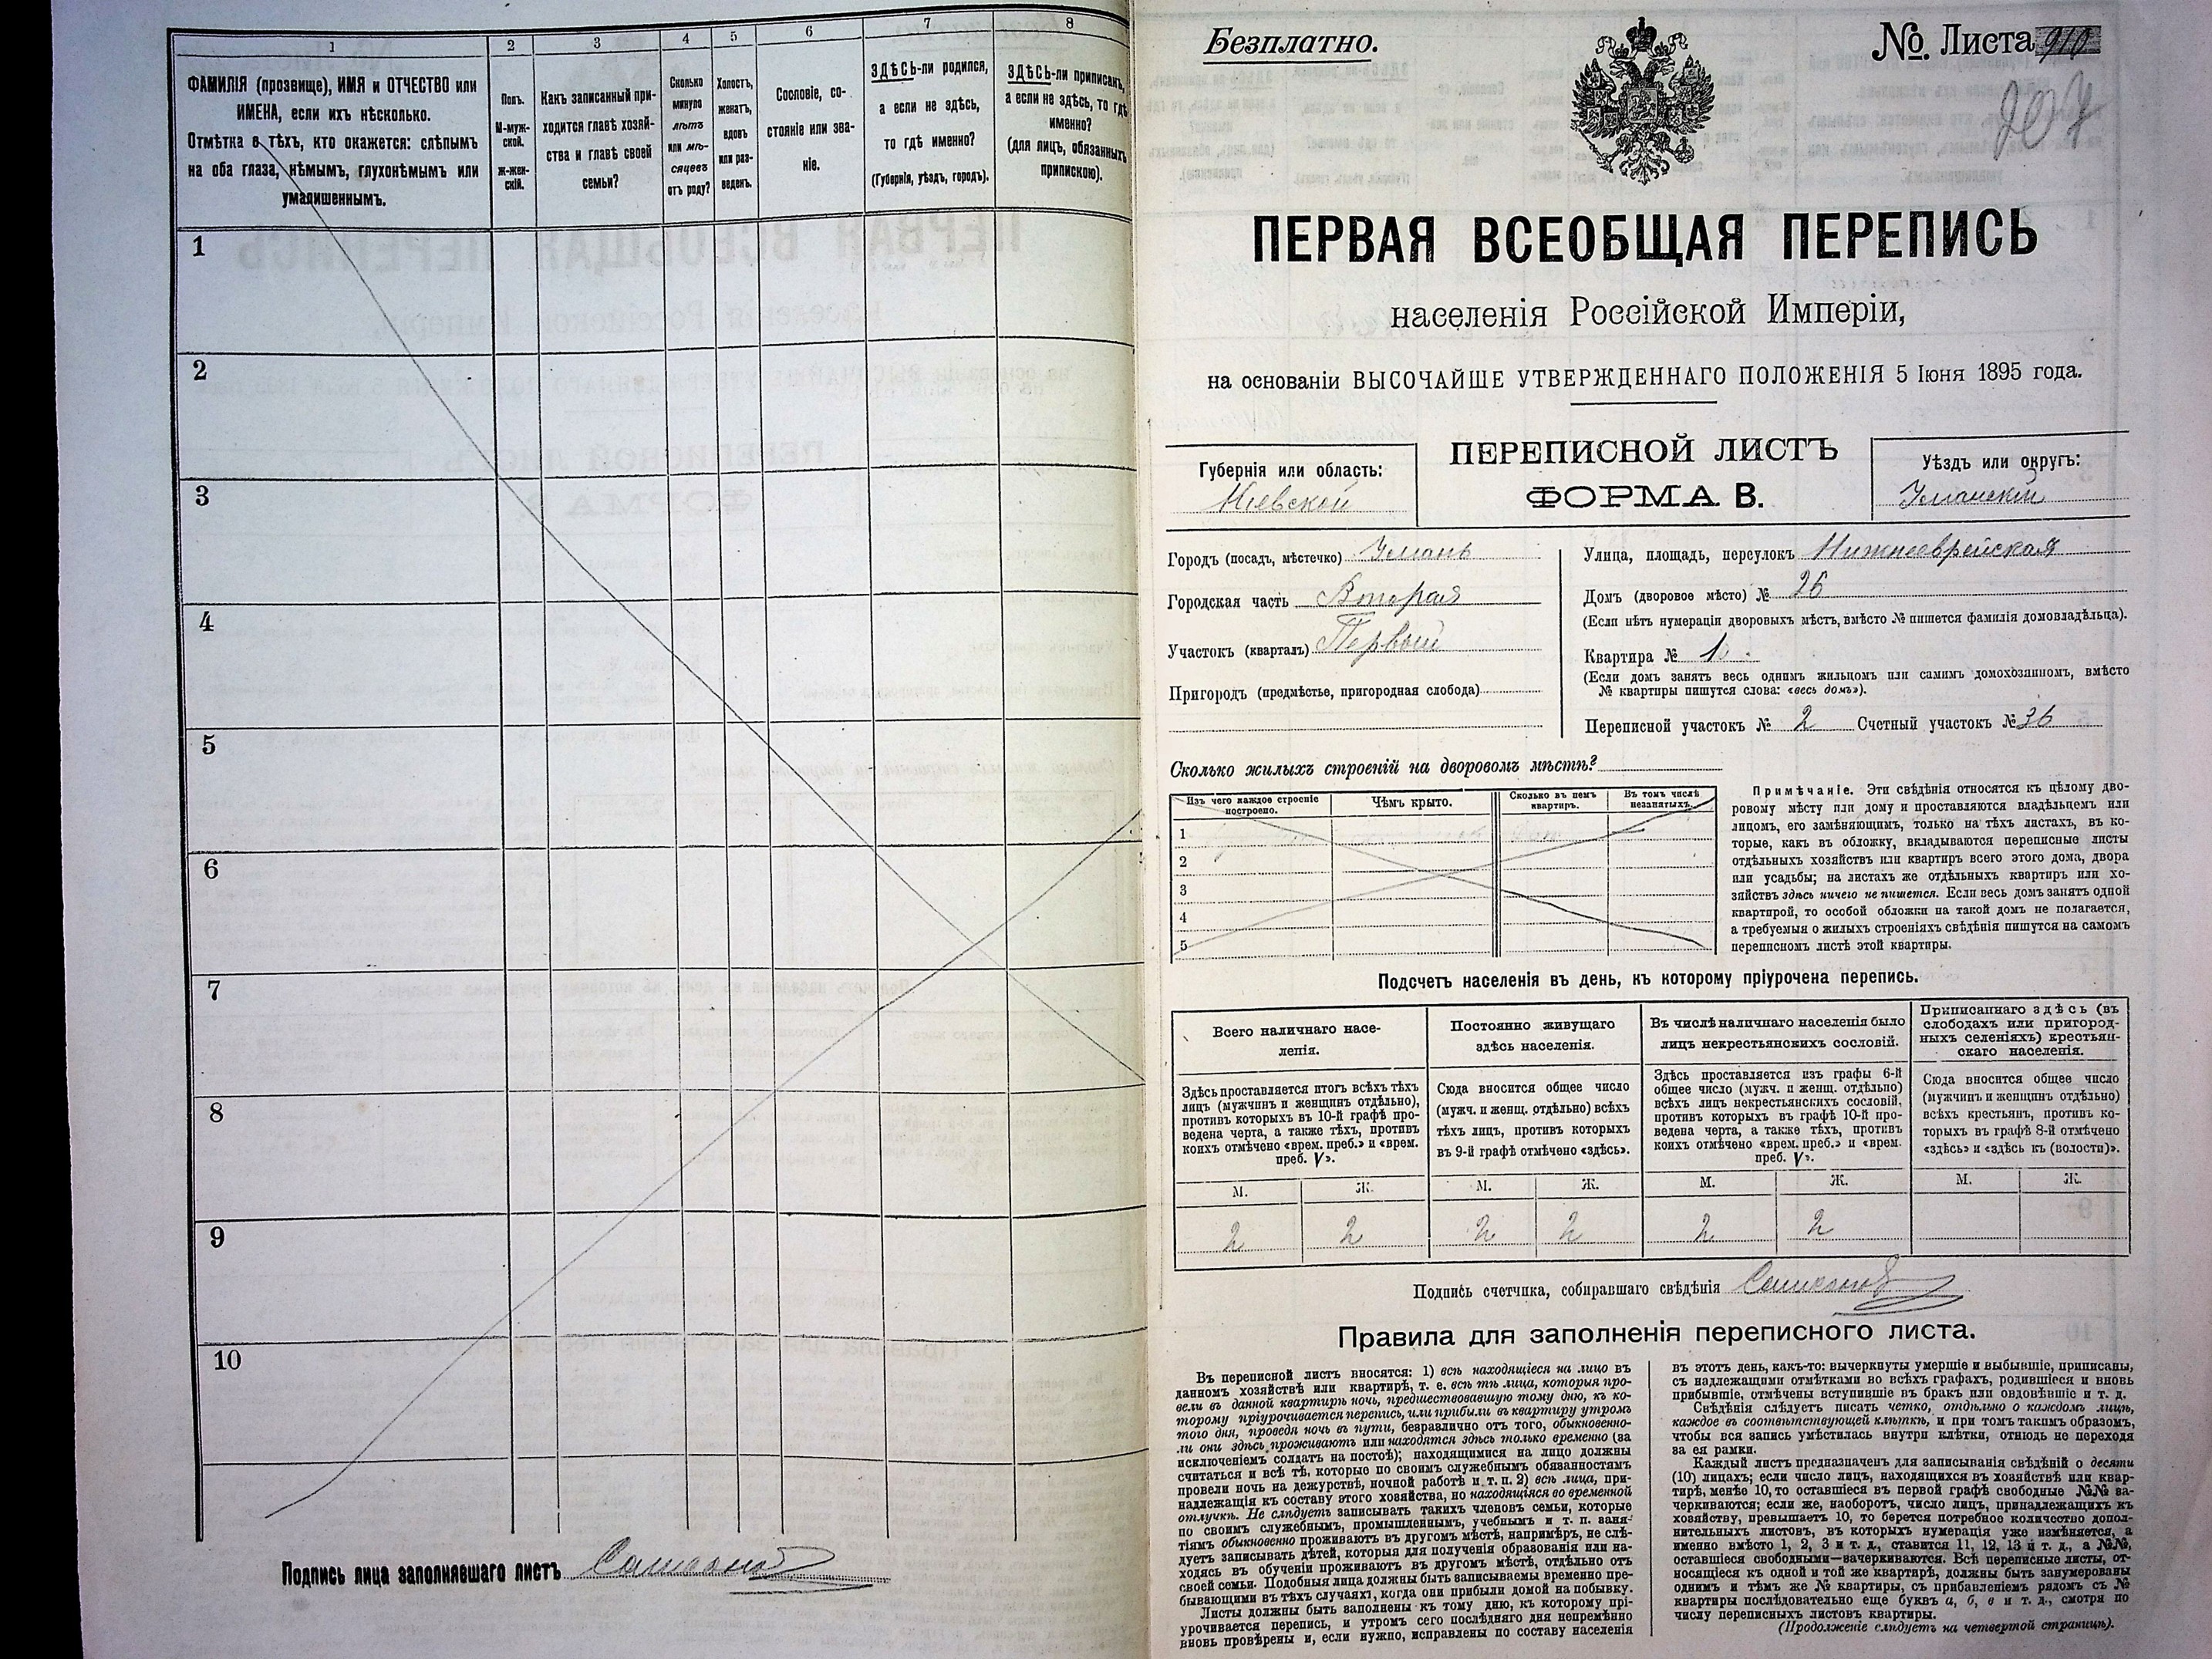 1
2
3
4
5
6
7
8
ФАМИЛІЯ (прозвище), ИМЯ и ОТЧЕСТВО или
ИМЕНА, если ихъ нѣсколько.
Отмѣтка о тѣхъ, кто окажется: слѣпымъ
на оба глаза, нѣмымъ, глухонѣмымъ или
умалишеннымъ.
Полъ.
М-муж-
ской.
Ж-жен-
скій.
Какъ записанный при-
ходится главѣ хозяй-
ства и главѣ своей
семьи?
Сколько
минуло
лѣтъ
или мѣ-
сяцевъ
отъ роду?
Холостъ,
женатъ,
вдовъ
или раз-
веденъ.
Сословіе, со-
стояніе или зва-
ніе.
ЗДѢСЬ-ли родился,
а если не здѣсь,
то гдѣ именно?
(Губернія, уѣздъ, городъ).
ЗДѢСЬ-ли приписанъ,
а если не здѣсь, то гдѣ
именно?
(для лицъ, обязанныхъ
припискою).
1
2
3
4
5
6
7
8
9
10
Подпись лица заполнявшаго листъ
Безплатно.
№ Листа 910
ПЕРВАЯ ВСЕОБЩАЯ ПЕРЕПИСЬ
населенія Россійской Имперіи,
на основаніи ВЫСОЧАЙШЕ УТВЕРЖДЕННАГО ПОЛОЖЕНІЯ 5 Іюня 1895 года.
Губернія или область:
Кіевской
ПЕРЕПИСНОЙ ЛИСТЪ
ФОРМА В.
Уѣздъ или округъ:
Уманскій
Городъ (посадъ, мѣстечко) Умань
Городская часть Вторая
Участокъ (кварталъ) Первый
Пригородъ (предмѣстье, пригородная слобода)
Улица, площадь, переулокъ Нижнееврейская
Домъ (дворовое мѣсто) № 26
(Если нѣтъ нумераціи дворовыхъ мѣстъ, вмѣсто № пишется фамилія домовладѣльца).
Квартира №
(Если домъ занятъ весь однимъ жильцомъ или самимъ домохозяиномъ, вмѣсто
№ квартиры пишутся слова: «весь домъ»).
Переписной участокъ № 2 Счетный участокъ № 36
Сколько жилыхъ строеній на дворовомъ мѣстѣ?
Изъ чего каждое строеніе
построено.
Чѣмъ крыто.
Сколько въ немъ
квартиръ.
Въ томъ числѣ
незанятыхъ.
1
2
3
4
5
Примѣчаніе. Эти свѣдѣнія относятся къ цѣлому дво-
ровому мѣсту или дому и проставляются владѣльцемъ или
лицомъ, его замѣняющимъ, только на тѣхъ листахъ, въ ко-
торые, какъ въ обложку, вкладываются переписные листы
отдѣльныхъ хозяйствъ или квартиръ всего этого дома, двора
или усадьбы; на листахъ же отдѣльныхъ квартиръ или хо-
зяйствъ здѣсь ничего не пишется. Если весь домъ занятъ одной
квартирой, то особой обложки на такой домъ не полагается,
а требуемыя о жилыхъ строеніяхъ свѣдѣнія пишутся на самомъ
переписномъ листѣ этой квартиры.
Подсчетъ населенія въ день, къ которому пріурочена перепись.
Всего наличнаго насе-
ленія.
Постоянно живущаго
здѣсь населенія.
Въ числѣ наличнаго населенія было
лицъ некрестьянскихъ сословій.
Приписаннаго здѣсь (въ
слободахъ или пригород-
ныхъ селеніяхъ) крестьян-
скаго населенія.
Здѣсь проставляется итогъ всѣхъ тѣхъ
лицъ (мужчинъ и женщинъ отдѣльно),
противъ которыхъ въ 10-й графѣ про-
ведена черта, а также тѣхъ, противъ
коихъ отмѣчено «врем. преб.» и «врем.
преб. V».
Сюда вносится общее число
(мужч. и женщ. отдѣльно) всѣхъ
тѣхъ лицъ, противъ которыхъ
въ 9-й графѣ отмѣчено «здѣсь».
Здѣсь проставляется изъ графы 6-й
общее число (мужч. и женщ. отдѣльно)
всѣхъ лицъ некрестьянскихъ сословій,
противъ которыхъ въ графѣ 10-й про-
ведена черта, а также тѣхъ, противъ
коихъ отмѣчено «врем. преб.» и «врем.
преб. V».
Сюда вносится общее число
(мужчинъ и женщинъ отдѣльно)
всѣхъ крестьянъ, противъ ко-
торыхъ въ графѣ 8-й отмѣчено
«здѣсь» и «здѣсь къ (волости)».
М. Ж. М. Ж. М. Ж. М. Ж.
2 2 2 2 2 2
Подпись счетчика, собиравшаго свѣдѣнія
Правила для заполненія переписного листа.
Въ переписной листъ вносятся: 1) всѣ находящіеся на лицо въ
данномъ хозяйствѣ или квартирѣ, т. е. всѣ тѣ лица, которыя про-
вели въ данной квартирѣ ночь, предшествовавшую тому дню, къ ко-
торому пріурочивается перепись, или прибыли въ квартиру утромъ
того дня, проведя ночь въ пути, безразлично отъ того, обыкновенно-
ли они здѣсь проживаютъ или находятся здѣсь только временно (за
исключеніемъ солдатъ на постоѣ); находящимися на лицо должны
считаться и всѣ тѣ, которые по своимъ служебнымъ обязанностямъ
провели ночь на дежурствѣ, ночной работѣ и т. п. 2) всѣ лица, при-
надлежащія къ составу этого хозяйства, но находящіяся во временной
отлучкѣ. Не слѣдуетъ записывать такихъ членовъ семьи, которые
по своимъ служебнымъ, промышленнымъ, учебнымъ и т. п. заня-
тіямъ обыкновенно проживаютъ въ другомъ мѣстѣ, напримѣръ, не слѣ-
дуетъ записывать дѣтей, которыя для полученія образованія или на-
ходясь въ обученіи проживаютъ въ другомъ мѣстѣ, отдѣльно отъ
своей семьи. Подобныя лица должны быть записываемы временно пре-
бывающими въ тѣхъ случаяхъ, когда они прибыли домой на побывку.
Листы должны быть заполнены къ тому дню, къ которому прі-
урочивается перепись, и утромъ сего послѣдняго дня непремѣнно
вновь провѣрены и, если нужно, исправлены по составу населенія
въ этотъ день, какъ-то: вычеркнуты умершіе и выбывшіе, приписаны,
съ надлежащими отмѣтками во всѣхъ графахъ, родившіеся и вновь
прибывшіе, отмѣчены вступившіе въ бракъ или овдовѣвшіе и т. д.
Свѣдѣнія слѣдуетъ писать четко, отдѣльно о каждомъ лицѣ,
каждое въ соотвѣтствующей клѣткѣ, и при томъ такимъ образомъ,
чтобы вся запись умѣстилась внутри клѣтки, отнюдь не переходя
за ея рамки.
Каждый листъ предназначенъ для записыванія свѣдѣній о десяти
(10) лицахъ; если число лицъ, находящихся въ хозяйствѣ или квар-
тирѣ, менѣе 10, то оставшіеся въ первой графѣ свободные №№ за-
черкиваются; если же, наоборотъ, число лицъ, принадлежащихъ къ
хозяйству, превышаетъ 10, то берется потребное количество допол-
нительныхъ листовъ, въ которыхъ нумерація уже измѣняется, а
именно вмѣсто 1, 2, 3 и т. д., ставится 11, 12, 13 и т. д., а №№,
оставшіеся свободными—зачеркиваются. Всѣ переписные листы, от-
носящіеся къ одной и той же квартирѣ, должны быть занумерованы
однимъ и тѣмъ же № квартиры, съ прибавленіемъ рядомъ съ №
квартиры послѣдовательно еще буквъ а, б, в и т. д., смотря по
числу переписныхъ листовъ квартиры.
(Продолженіе слѣдуетъ на четвертой страницѣ).